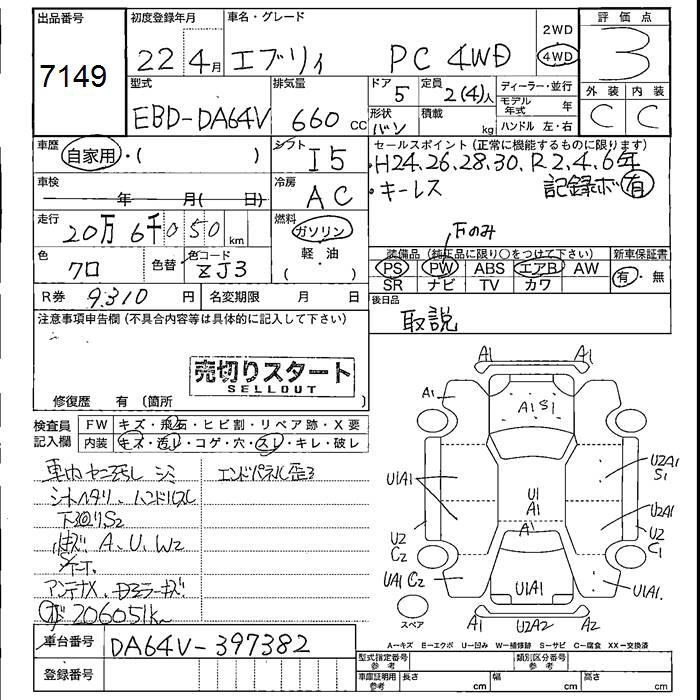 出品番号 初度登録年月 車名・グレード 2WD 評価点
7149 22年4月 エブリィ PC 4WD 4WD 3
型式 排気量 ドア 定員 ディーラー・並行 外装 内装
EBD-DA64V 660cc 5 2(4)人 モデル年式 年 C C
形状 バン 積載 kg ハンドル 左・右
車歴 自家用・( ) シフト I5 セールスポイント(正常に機能するものに限ります)
・H24.26.28.30.R2.4.6年
車検 年 月( 日) 冷房 AC ・キーレス 記録ボ有
走行 20万6千050km 燃料 ガソリン 下のみ
軽・油 装備品(純正品に限り○をつけて下さい) 新車保証書
色 クロ 色替・ 色コード ZJ3 PS PW ABS エアB AW 有・無
SR ナビ TV カワ
R券 9,310円 名変期限 月 日 後日品
注意事項申告欄(不具合内容等は具体的に記入して下さい) 取説
売切りスタート
SELLOUT
修復歴 有(箇所 )
検査員 FW キズ・飛石・ヒビ割・リペア跡・X要
記入欄 内装 キズ・汚レ・コゲ・穴・スレ・キレ・破レ
車内ヤニ汚レ シミ エンドパネル歪ミ
シートヘタリ、ハンドルスレ
下廻りS2
A、U、W2
アンテナX、Dミラーキズ
ホ206051km
車台番号 DA64V-397382
登録番号
A1 A1
A1 A1S1
U1A1 U1 A1 U2A1 S1
A1 U2A1
U2 C2 U2 C1
UA1 C2 U1A1 U1A1.
スペア A1 U2A2 A2
A=キズ E=エクボ U=凹み W=補修跡 S=サビ C=腐食 XX=交換済
型式指定番号 参考 類別区分番号 参考
車庫証明用 参考 長さ cm 幅 cm 高さ cm